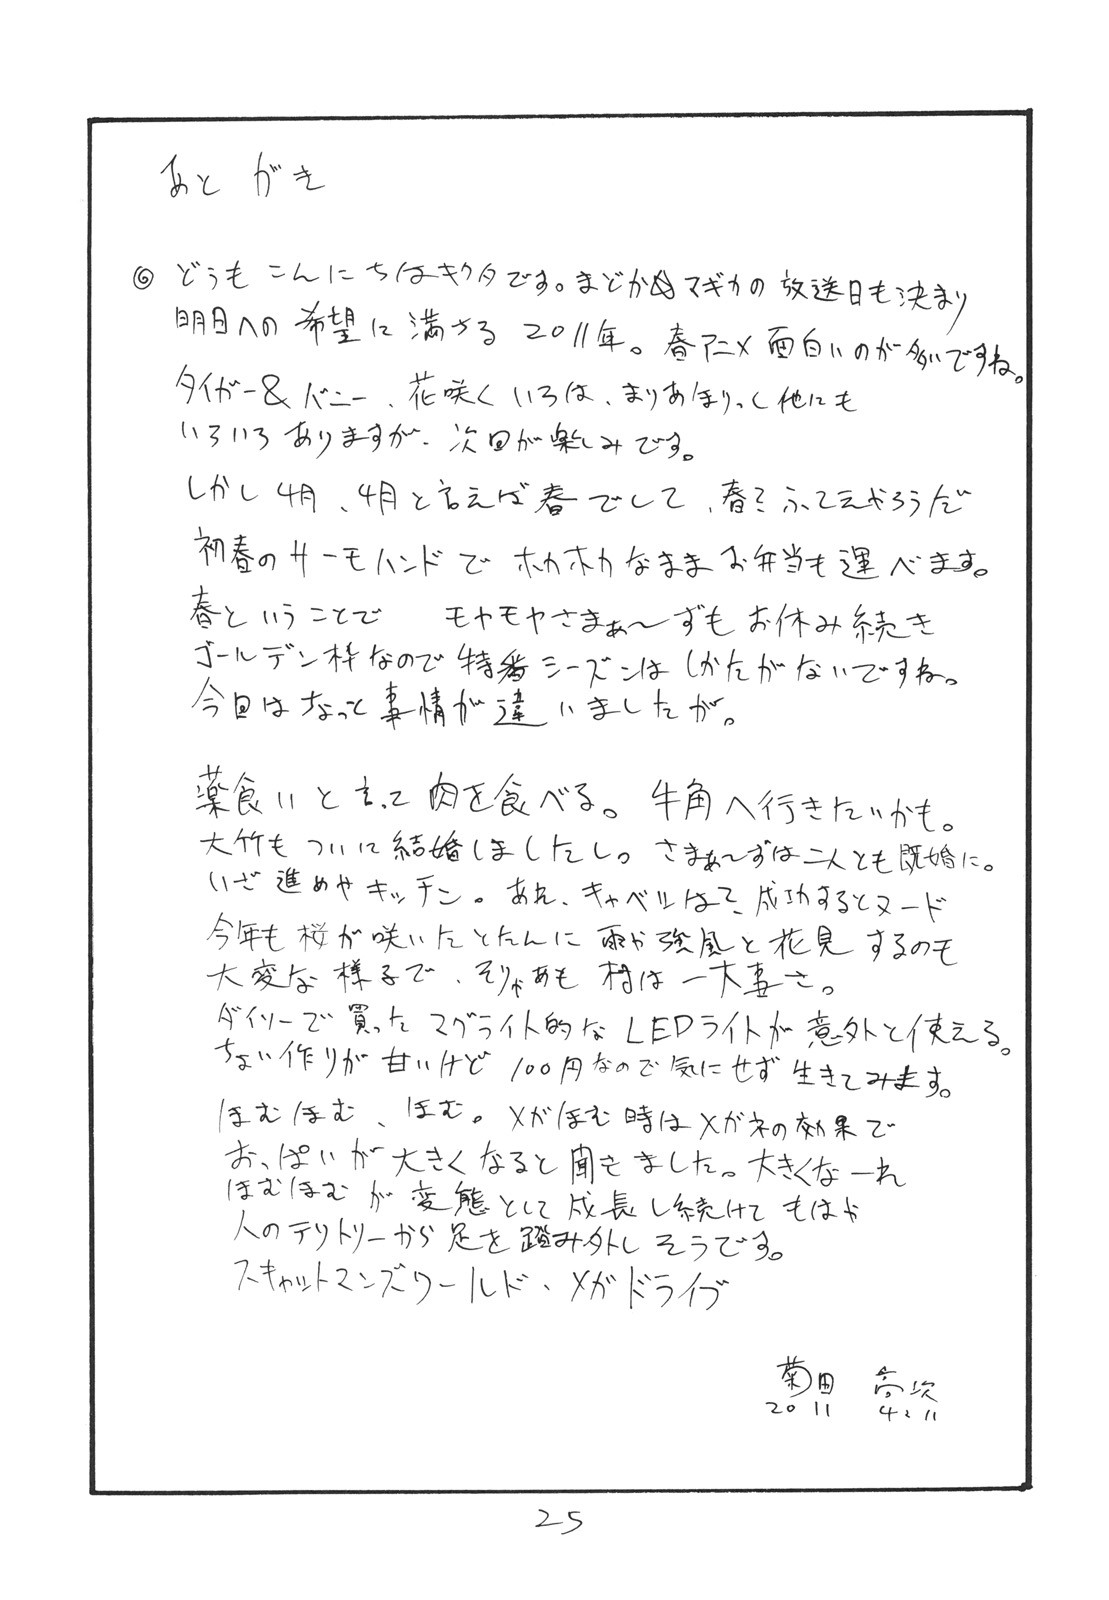 あとがき
◎ どうもこんにちはキクタです。まどか☆マギカの放送日も決まり
明日への希望に満ちる 2011年。春アニメ面白いのが多いですね。
タイガー&バニー、花咲くいろは、まりあほりっく他にも
いろいろありますが、次回が楽しみです。
しかし4月、4月と言えば春でして、春を
初春のサーモハンドでホカホカなままお弁当も運べます。
春ということで モヤモヤさまぁ〜ずもお休み続き
ゴールデン枠なので特番シーズンはしかたがないですね。
今回はちょっと事情が違いましたが。
薬食いと言って肉を食べる。牛角へ行きたいかも。
大竹もついに結婚しましたし。さまぁ〜ずは二人とも既婚に。
いざ進めやキッチン。あれ、キャベツはて、成功するとヌード
今年も桜が咲いたとたんに雨や強風と花見するのも
大変な様子で、そりゃあも村は一大事さ。
ダイソーで買ったマグライト的なLEDライトが意外と使える。
ちょい作りが甘いけど100円なので気にせず生きてみます。
ほむほむ、ほむ。メガほむ時はメガネの効果で
おっぱいが大きくなると聞きました。大きくなーれ
ほむほむが変態として成長し続けてもはや
人のテリトリーから足を踏み外しそうです。
スキャットマンズワールド・メガドライブ
菊田 高次
2011 4.11
25